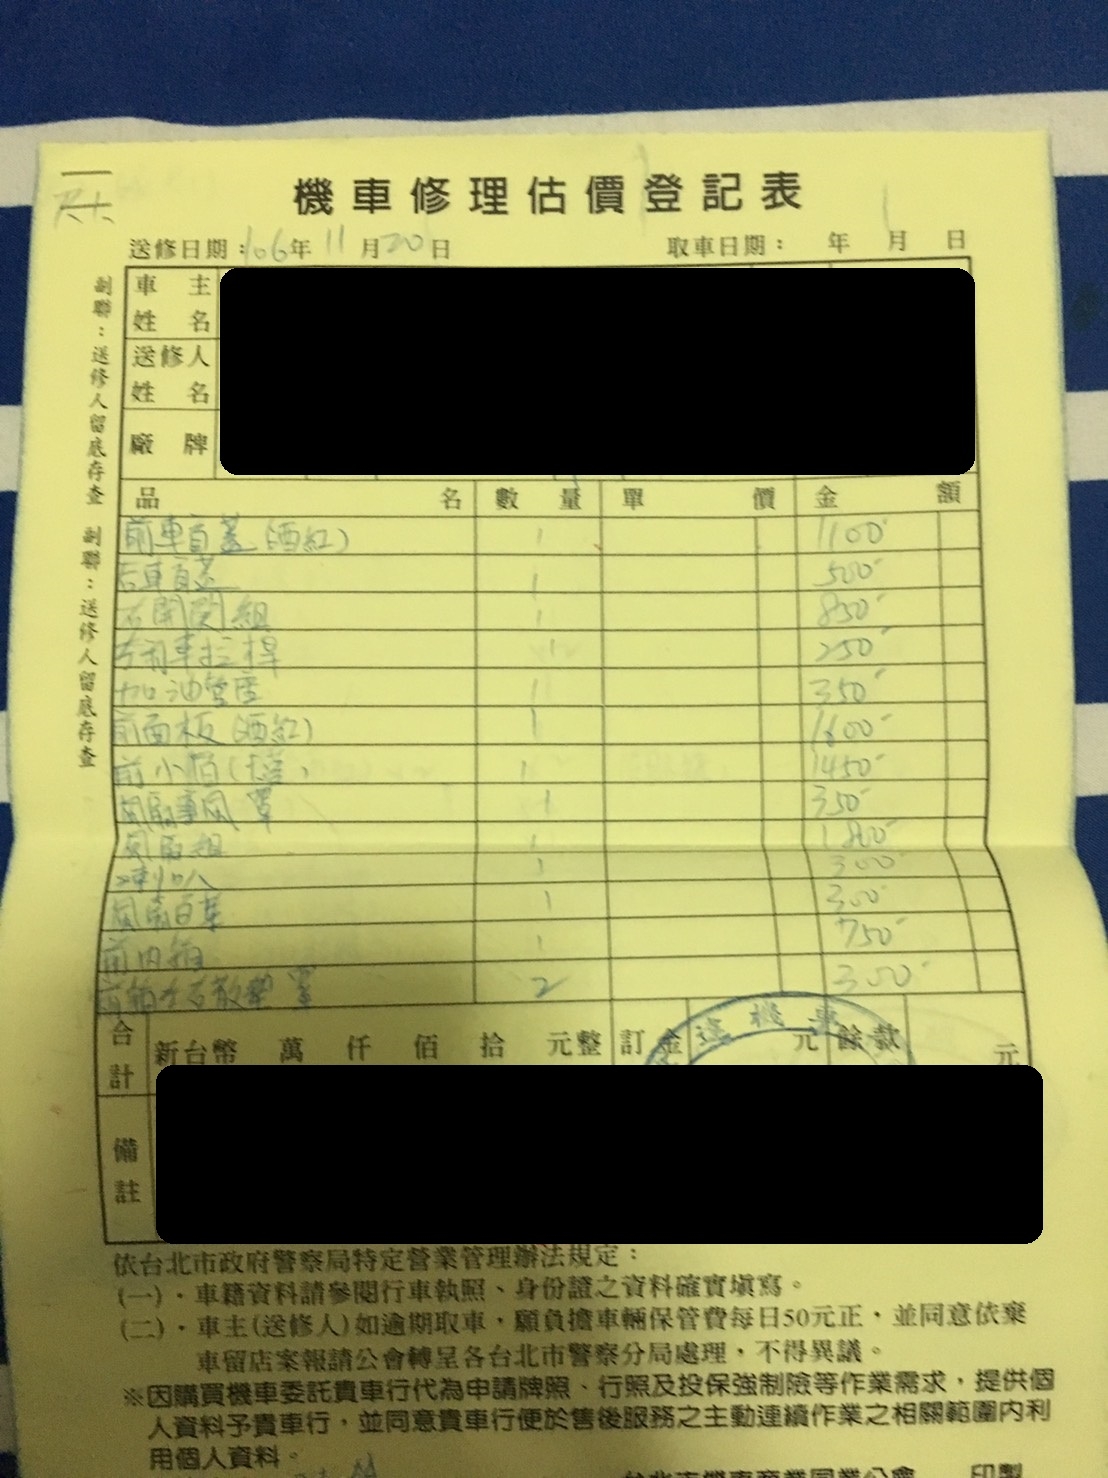 機車修理估價登記表
送修日期：106年11月20日
取車日期： 年 月 日
副聯：送修人留底存查 副聯：送修人留底存查
車主
姓名
送修人
姓名
廠牌
品名 數量 單價 金額
前車頁蓋(酒紅) 1 1100
后車頁蓋 1 500
右開関組 1 850
右刹車拉桿 1 250
加油管座 1 350
前面板(酒紅) 1 1600
前小 1 1450
1 350
組 1 1800
喇叭 1 300
1 300
前内箱 1 750
2 350
合計 新台幣 萬 仟 佰 拾 元整 訂金 元 餘款 元
達機車
備註
依台北市政府警察局特定營業管理辦法規定：
(一)．車籍資料請參閱行車執照、身份證之資料確實填寫。
(二)．車主(送修人)如逾期取車，願負擔車輛保管費每日50元正，並同意依棄
車留店案報請公會轉呈各台北市警察分局處理，不得異議。
※因購買機車委託貴車行代為申請牌照、行照及投保強制險等作業需求，提供個
人資料予貴車行，並同意貴車行便於售後服務之主動連續作業之相關範圍內利
用個人資料。
台北市機車商業同業公會 印製